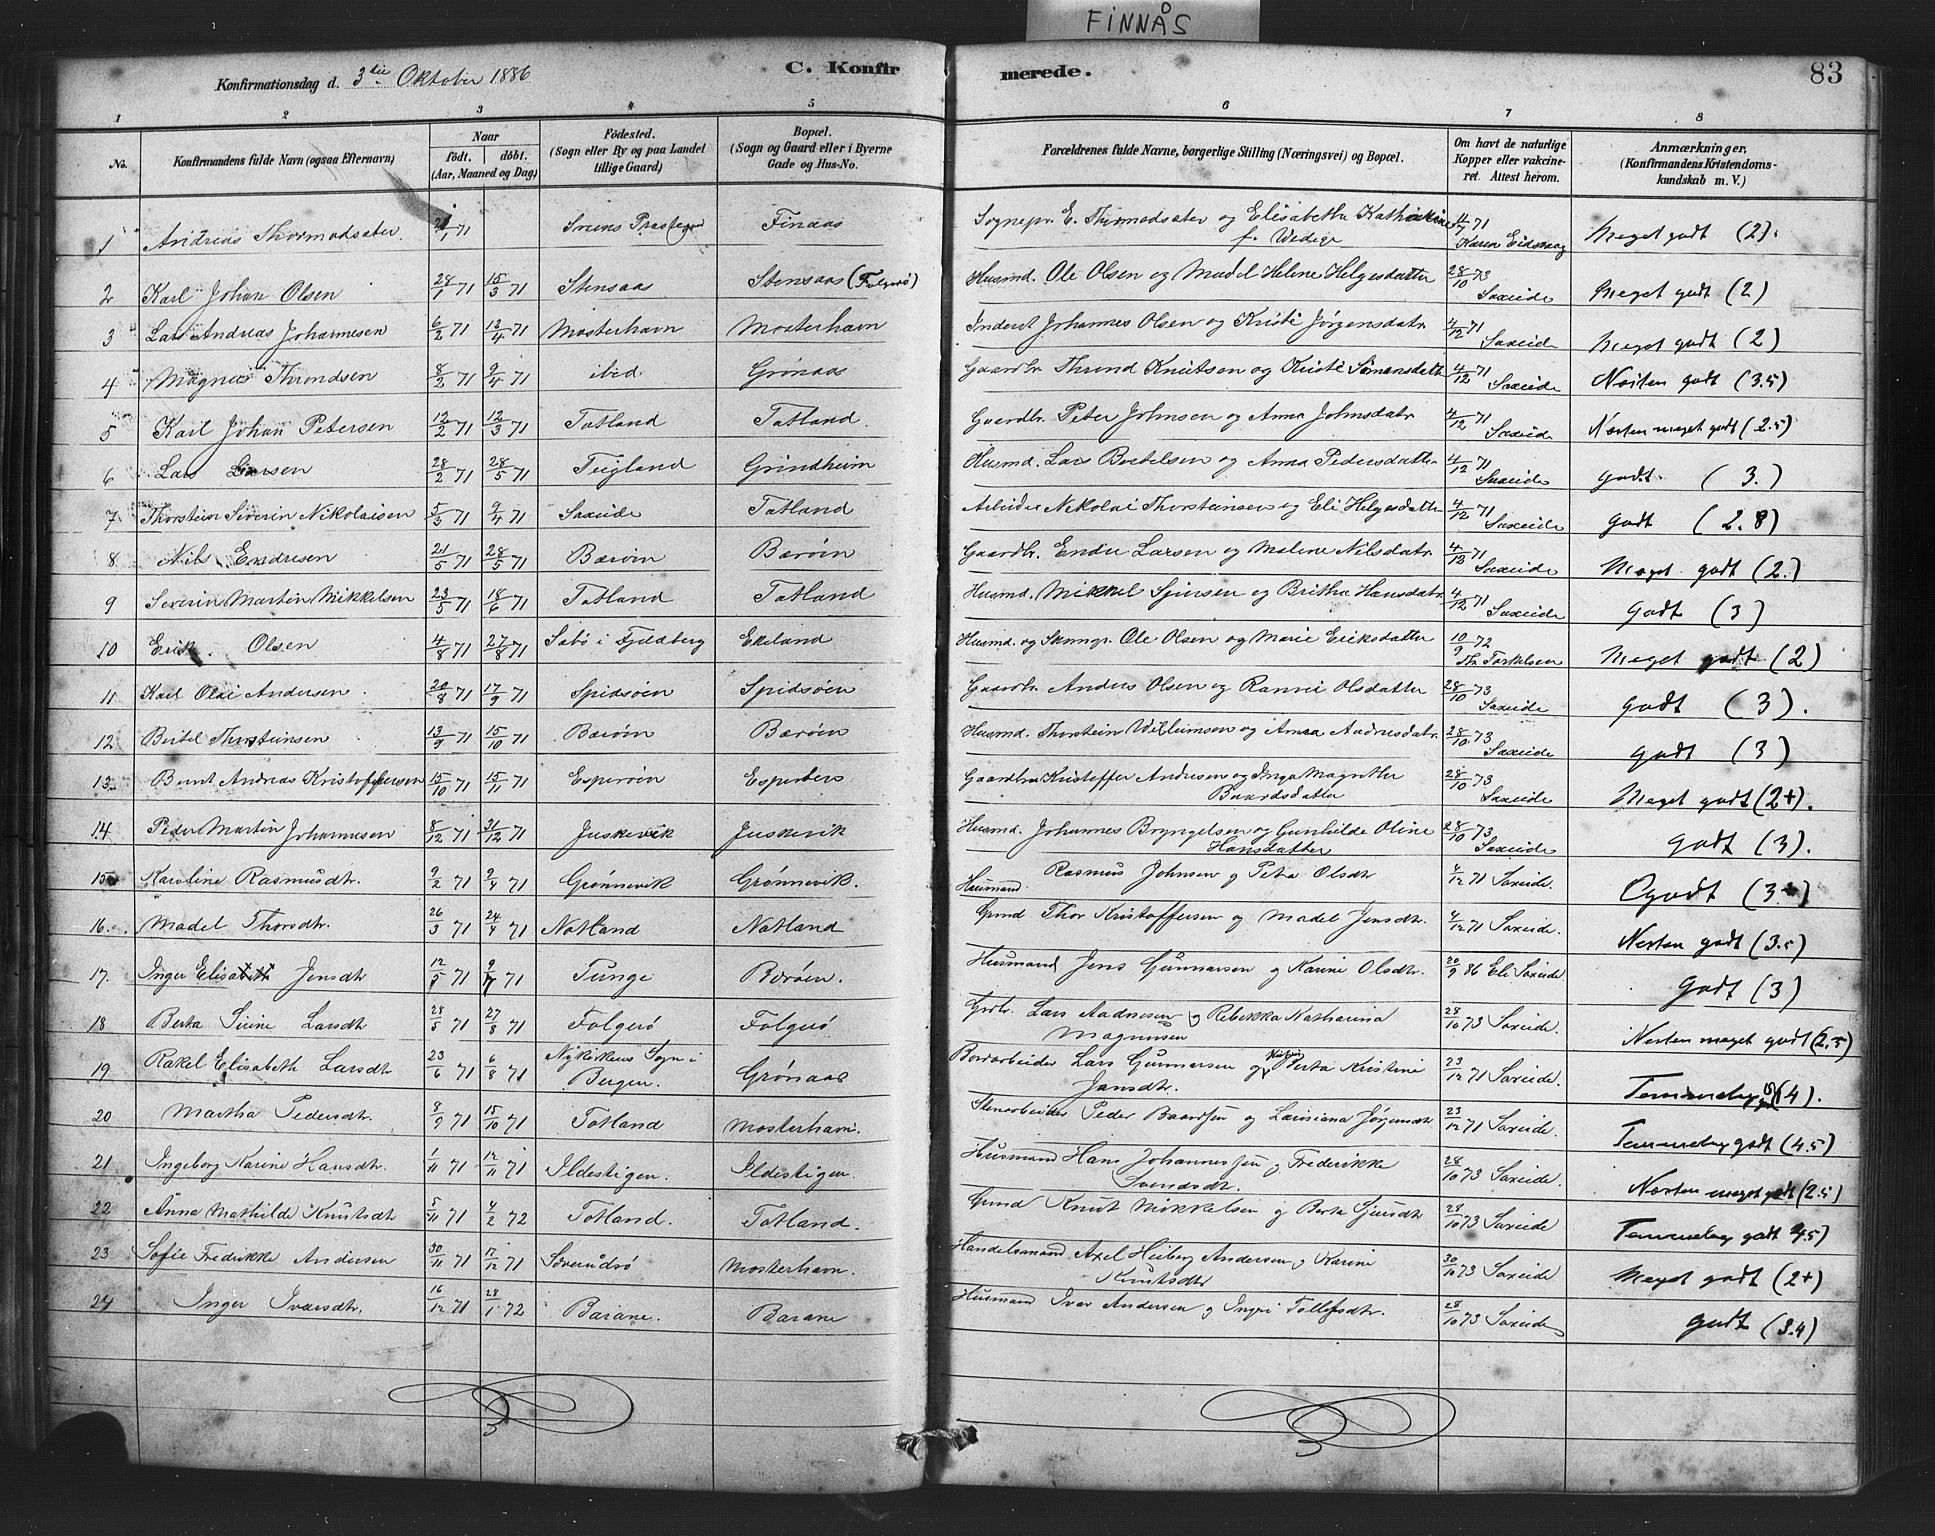 FINNÅS
Konfirmationsdag d. 3die Oktober 1886 C. Konfirmerede. 83
1 2 3 4 5 6 7 8
No. Konfirmandens fulde Navn (ogsaa Efternavn) Naar födt. döbt. (Aar, Maaned og Dag) Födested. (Sogn eller By og paa Landet tillige Gaard) Bopæl. (Sogn og Gaard eller i Byerne Gade og Hus-No. Forældrenes fulde Navne, borgerlige Stilling (Næringsvei) og Bopæl. Om havt de naturlige Kopper eller vakcineret. Attest herom. Anmærkninger, (Konfirmandens Kristendomskundskab m. V.)
1 Andreas Thormodsæter. 71 Finaas Sognepr. E. Thormodsæter og Elisabeth Kathrine f. Wedege 4/7 71 Karen Eidsvaag Meget godt (2).
2 Karl Johan Olsen 28/1 71 15/3 71 Stensaas Stensaas (Folgerø) Husmd. Ole Olsen og Madel Helene Helgesdatter 28/10 73 Saxeide Meget godt (2)
3 Lars Andreas Johannesen 6/2 71 12/4 71 Mosterhavn Mosterhavn Inderst Johannes Olsen og Kristi Jørgensdatr 4/12 71 Saxeide Meget godt (2)
4 Magnus Throndsen 8/2 71 9/4 71 ibid. Grönaas Gaardbr. Thrond Knutsen og Kristi Simonsdattr 4/12 71 Saxeide Næsten godt (3.5)
5 Karl Johan Petersen 12/2 71 12/3 71 Totland Totland. Gaardbr. Peter Johnsen og Anna Johnsdatr 4/12 71 Saxeide Næsten meget godt (2.5)
6 Lars Larsen 28/2 71 28/5 71 Teigland Grindheim Husmd. Lars Bertelsen og Anna Pedersdatter 4/12 71 Saxeide godt. (3.)
7 Thorstein Severin Nikolaisen 5/3 71 9/4 71 Saxeide Totland Arbeider Nikolai Thorsteinsen og Eli Helgesdatter 4/12 71 Saxeide godt (2.8)
8 Nils Endresen 21/5 71 28/5 71 Bærøen Bærøen Gaardbr. Endre Larsen og Malene Nilsdatr. 4/12 71 Saxeide Meget godt (2.)
9 Severin Martin Mikkelsen 23/5 71 18/6 71 Totland Totland Husmd. Mikkel Sjursen og Britha Hansdatr 4/12 71 Saxeide Godt (3)
10 Erik Olsen 4/8 71 27/8 71 Sæbö i Fjeldberg Ekeland Husmd. og Skomgr. Ole Olsen og Marie Eriksdatter 10/9 72 Th. Torkelsen Meget godt (2)
11 Karl Olai Andersen 20/8 71 17/9 71 Spidsöen Spidsöen Gaardbr Anders Olsen og Ranvei Olsdatter 28/10 73 Saxeide godt (3).
12 Bertel Thorsteinsen 13/9 71 15/10 71 Bærøen Bærøen Husmd. Thorstein Willumsen og Anna Andreasdatr. 28/10 73 Saxeide godt (3)
13 Bernt Andreas Kristoffersen 15/10 71 15/11 71 Esperöen Gaardbr Kristoffer Andersen og Inga Magrethe Baardsdatter 28/10 73 Saxeide Meget godt (2+).
14 Peder Martin Johannesen 8/12 71 31/12 71 Juskevik Juskevik Husmd. Johannes Bryngelsen og Gunhilde Oline Hansdatter 28/10 73 Saxeide godt (3).
15 Karoline Rasmusdtr. 9/2 71 9/4 71 Grønnevik Grønnevik. Husmand. Rasmus Johnsen og Petra Olsdtr 4/12 71 Saxeide. godt (3+)
16. Madel Thorsdtr. 26/3 71 24/4 71 Notland Notland Grmd Thor Kristoffersen og Madel Jensdtr. 4/12 71 Saxeide. Nesten godt (3.5)
17. Inger Elisabeth Jensdtr 12/5 71 9/7 71 Tunge Bærøen. Husmand Jens Gunnarsen og Karine Olsdtr. 20/9 86 Eli Saxeide Godt (3)
18 Berta Sirine Larsdtr 28/5 71 27/8 71 Folgerö Folgerö Grbr. Lars Aadnesen og Rebekka Katharina Magnusen 28/10 73 Saxeide. Nesten meget godt (2.5)
19 Rakel Elisabeth Larsdtr 23/6 71 6/8 71 Nykirkens Sogn i Bergen. Grønaas Bordarbeider Lars Gunnarsen og Berta Kristine Jansdtr. 23/12 71 Saxeide. Temmelig (4).
20 Martha Pedersdtr. 8/9 71 15/10 71 Totland Mosterhavn. Stenarbeider Peder Baardsen og Lavisiana Jørgensdtr 23/12 71 Saxeide. Temmeleg godt (4.5)
21 Ingeborg Karine Hansdtr. 1/11 71 12/11 71 Ildestigen. Ildestigen. Husmand Hans Johannessen og Frederikke Svendsdtr. 28/10 73 Saxeide. Næsten meget godt (2.5)
22 Anna Mathilde Knutsdtr 5/11 71 4/2 72 Totland. Totland. Grmd Knut Mikkelsen og Berta Sjursdtr 28/10 73 Saxeide Temmeleg godt 4.5)
23 Sofie Frederikke Andersen 30/11 71 17/12 71 Mosterhavn. Handelsmand Axel Heiberg Andersen og Karine Knutsdtr 30/10 73 Saxeide Meget godt (2+)
24 Inger Ivarsdtr. 16/12 71 28/1 72 Barane. Barane Husmand Ivar Andersen og Ingri Tollefsdtr. 28/10 73 Saxeide godt (3.4)